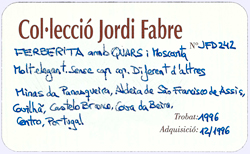 Col·lecció Jordi Fabre
FERBERITA amb QUARS i Moscovita Nº JFD242
Molt elegant. Sense cap cop. Diferent d'altres
Minas da Panasqueira, Aldeia de São Francisco de Assis,
Covilhã, Castelo Branco, Cova da Beira,
Centro, Portugal
Trobat: 1996
Adquisició: 12/1996